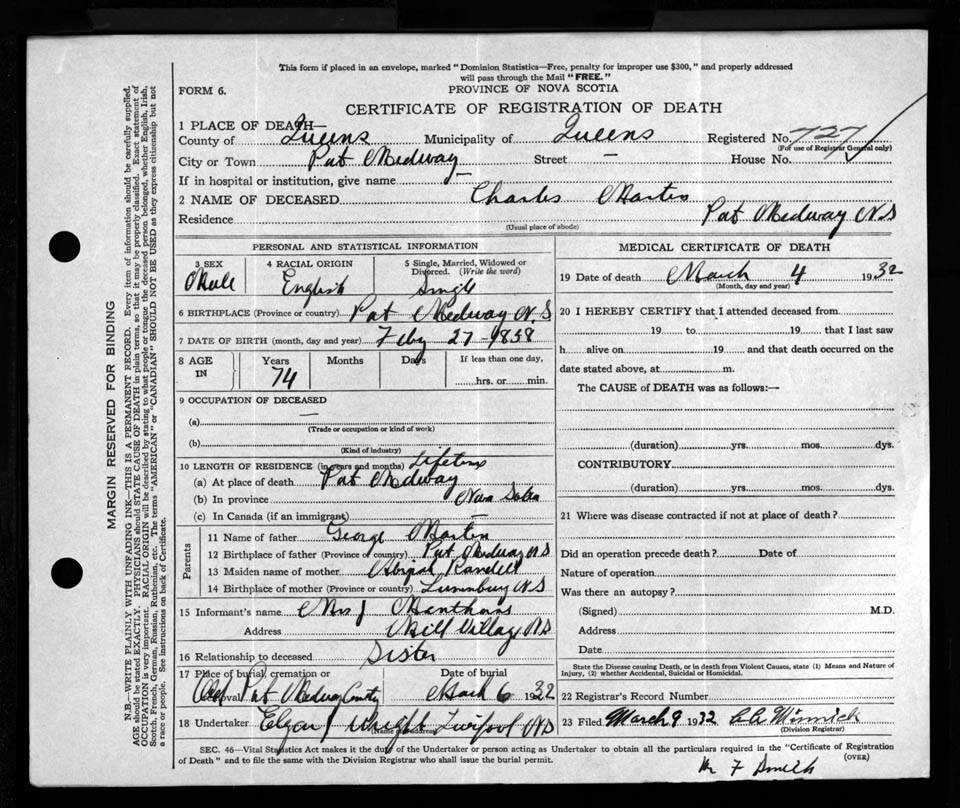 This form if placed in an envelope, marked "Dominion Statistics—Free, penalty for improper use $300," and properly addressed
will pass through the Mail "FREE."
FORM 6. PROVINCE OF NOVA SCOTIA
CERTIFICATE OF REGISTRATION OF DEATH
1 PLACE OF DEATH—
County of Queens Municipality of Queens Registered No. 727
(For use of Registrar General only)
City or Town Pat Medway Street — House No.
If in hospital or institution, give name —
2 NAME OF DECEASED Charles
Residence Pat Medway NS
(Usual place of abode)
PERSONAL AND STATISTICAL INFORMATION
3 SEX 4 RACIAL ORIGIN 5 Single, Married, Widowed or
Divorced. (Write the word)
Male English Single
6 BIRTHPLACE (Province or country) Pat Medway N.S
7 DATE OF BIRTH (month, day and year) Feby 27-1858
8 AGE IN Years Months Days If less than one day,
74 hrs. or min.
9 OCCUPATION OF DECEASED
(a) —
(Trade or occupation or kind of work)
(b)
(Kind of industry)
10 LENGTH OF RESIDENCE (in years and months) Lifetime
(a) At place of death Pat Medway
(b) In province Nova Scotia
(c) In Canada (if an immigrant) —
Parents
11 Name of father George
12 Birthplace of father (Province or country) Pat Medway NS
13 Maiden name of mother Randell
14 Birthplace of mother (Province or country) Lunenburg NS
15 Informant's name Mrs J
Address Mill Village NS
16 Relationship to deceased Sister
17 Place of burial, cremation or Date of burial
removal Pat Medway March 6 1932
18 Undertaker Wright Liverpool NS
(Name and address)
MEDICAL CERTIFICATE OF DEATH
19 Date of death March 4 1932
(Month, day and year)
20 I HEREBY CERTIFY that I attended deceased from
19 to 19 that I last saw
h alive on 19 and that death occurred on the
date stated above, at m.
The CAUSE of DEATH was as follows:—
(duration) yrs. mos. dys.
CONTRIBUTORY
(duration) yrs. mos. dys.
21 Where was disease contracted if not at place of death?
Did an operation precede death? Date of
Nature of operation
Was there an autopsy?
(Signed) M.D.
Address
Date
State the Disease causing Death, or in death from Violent Causes, state (1) Means and Nature of
Injury, (2) whether Accidental, Suicidal or Homicidal.
22 Registrar's Record Number
23 Filed March 9 1932
(Division Registrar)
SEC. 46—Vital Statistics Act makes it the duty of the Undertaker or person acting as Undertaker to obtain all the particulars required in the "Certificate of Registration
of Death" and to file the same with the Division Registrar who shall issue the burial permit. (OVER)
F Smith
MARGIN RESERVED FOR BINDING
N.B.—WRITE PLAINLY WITH UNFADING INK—THIS IS A PERMANENT RECORD. Every item of information should be carefully supplied.
AGE should be stated EXACTLY. PHYSICIANS should STATE CAUSE OF DEATH in plain terms, so that it may be properly classified. Exact statement of
OCCUPATION is very important. RACIAL ORIGIN will be described by stating to what people or tongue the deceased person belonged, whether English, Irish,
Scotch, French, German, Russian, Ruthenian, etc. The terms "AMERICAN" or "CANADIAN" SHOULD NOT BE USED as they express citizenship but not
a race or people. See instructions on back of Certificate.